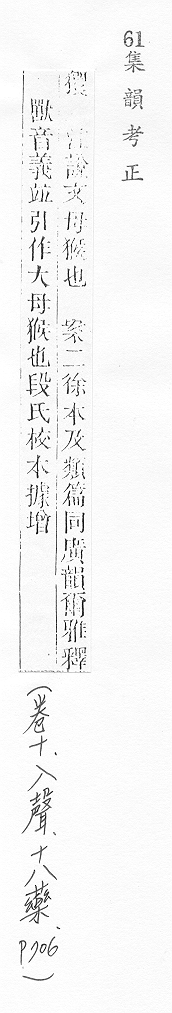 61集韻考正
玃 注說文母猴也 案二徐本及類篇同廣韻爾雅釋
獸音義竝引作大母猴也段氏校本據增
(卷十、入聲、十八藥、P706)